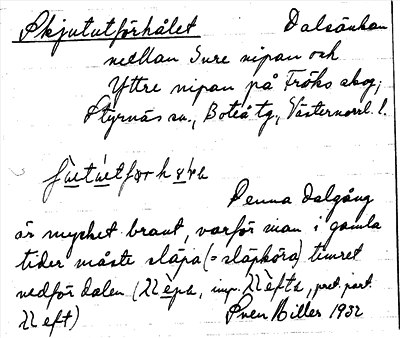 Skjututförhålet Dalsänkan
mellan Inre nipan och
Yttre nipan på Fröks skog,
Styrnäs sn., Boteå tg., Västernorrl. l.
Denna dalgång
är mycket brant, varför man i gamla
tider måste släpa (= släpköra) timret
nedför dalen ( imp. pret. part.
Sven Hiller 1932